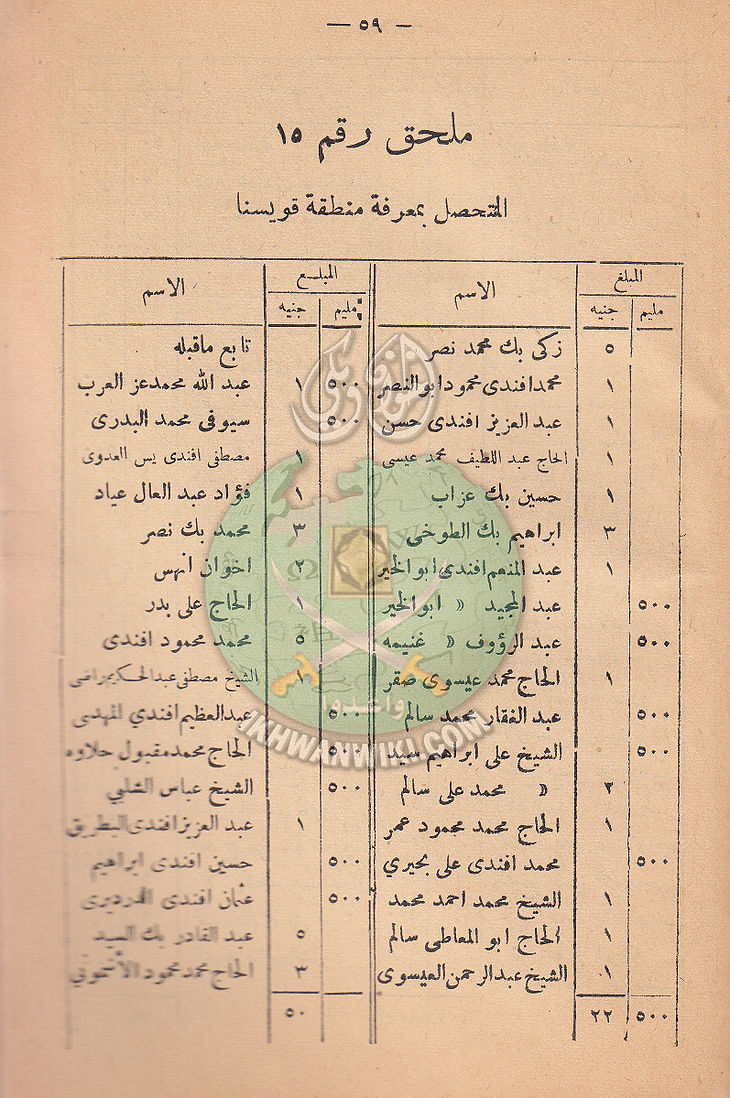 — ٥٩ —
ملحق رقم ١٥
المتحصل بمعرفة منطقة قويسنا
المبلغ الاسم المبلغ الاسم
مليم جنيه مليم جنيه
٥ زكى بك محمد نصر تابع ماقبله
١ محمد افندى محمود ابو النصر ٥٠٠ ١ عبد الله محمد عز العرب
١ عبد العزيز افندى حسن ٥٠٠ سيوفى محمد البدرى
١ الحاج عبد اللطيف محمد عيسى ١ مصطفى افندى يس العدوى
١ حسين بك عزاب ١ فؤاد عبد العال عياد
٣ ابراهيم بك الطوخى ٣ محمد بك نصر
١ عبد المنعم افندى ابو الخير ٢ اخوان انهس
٥٠٠ عبد المجيد » ابو الخير ١ الحاج على بدر
٥٠٠ عبد الرؤوف » غنيمه ٥ محمد محمود افندى
١ الحاج محمد عيسوى صقر ١ الشيخ مصطفى عبد الحكيم راضى
٥٠٠ عبد الغفار محمد سالم ٥٠٠ عبد العظيم افندي المهدى
٥٠٠ الشيخ على ابراهيم سيد ٥٠٠ الحاج محمد مقبول حلاوه
٢ » محمد على سالم ٥٠٠ الشيخ عباس الشلبي
١ الحاج محمد محمود عمر ١ عبد العزيز افندى البطريق
٥٠٠ محمد افندى على بحيري ٥٠٠ حسين افندى ابراهيم
١ الشيخ محمد احمد محمد ٥٠٠ عثمان افندى الدرديرى
١ الحاج ابو المعاطى سالم ٥ عبد القادر بك السيد
١ الشيخ عبد الرحمن العيسوى ٣ الحاج محمد محمود الأشمونى
٥٠٠ ٢٢ ٥٠
واعدوا
IKHWANWIKI.COM